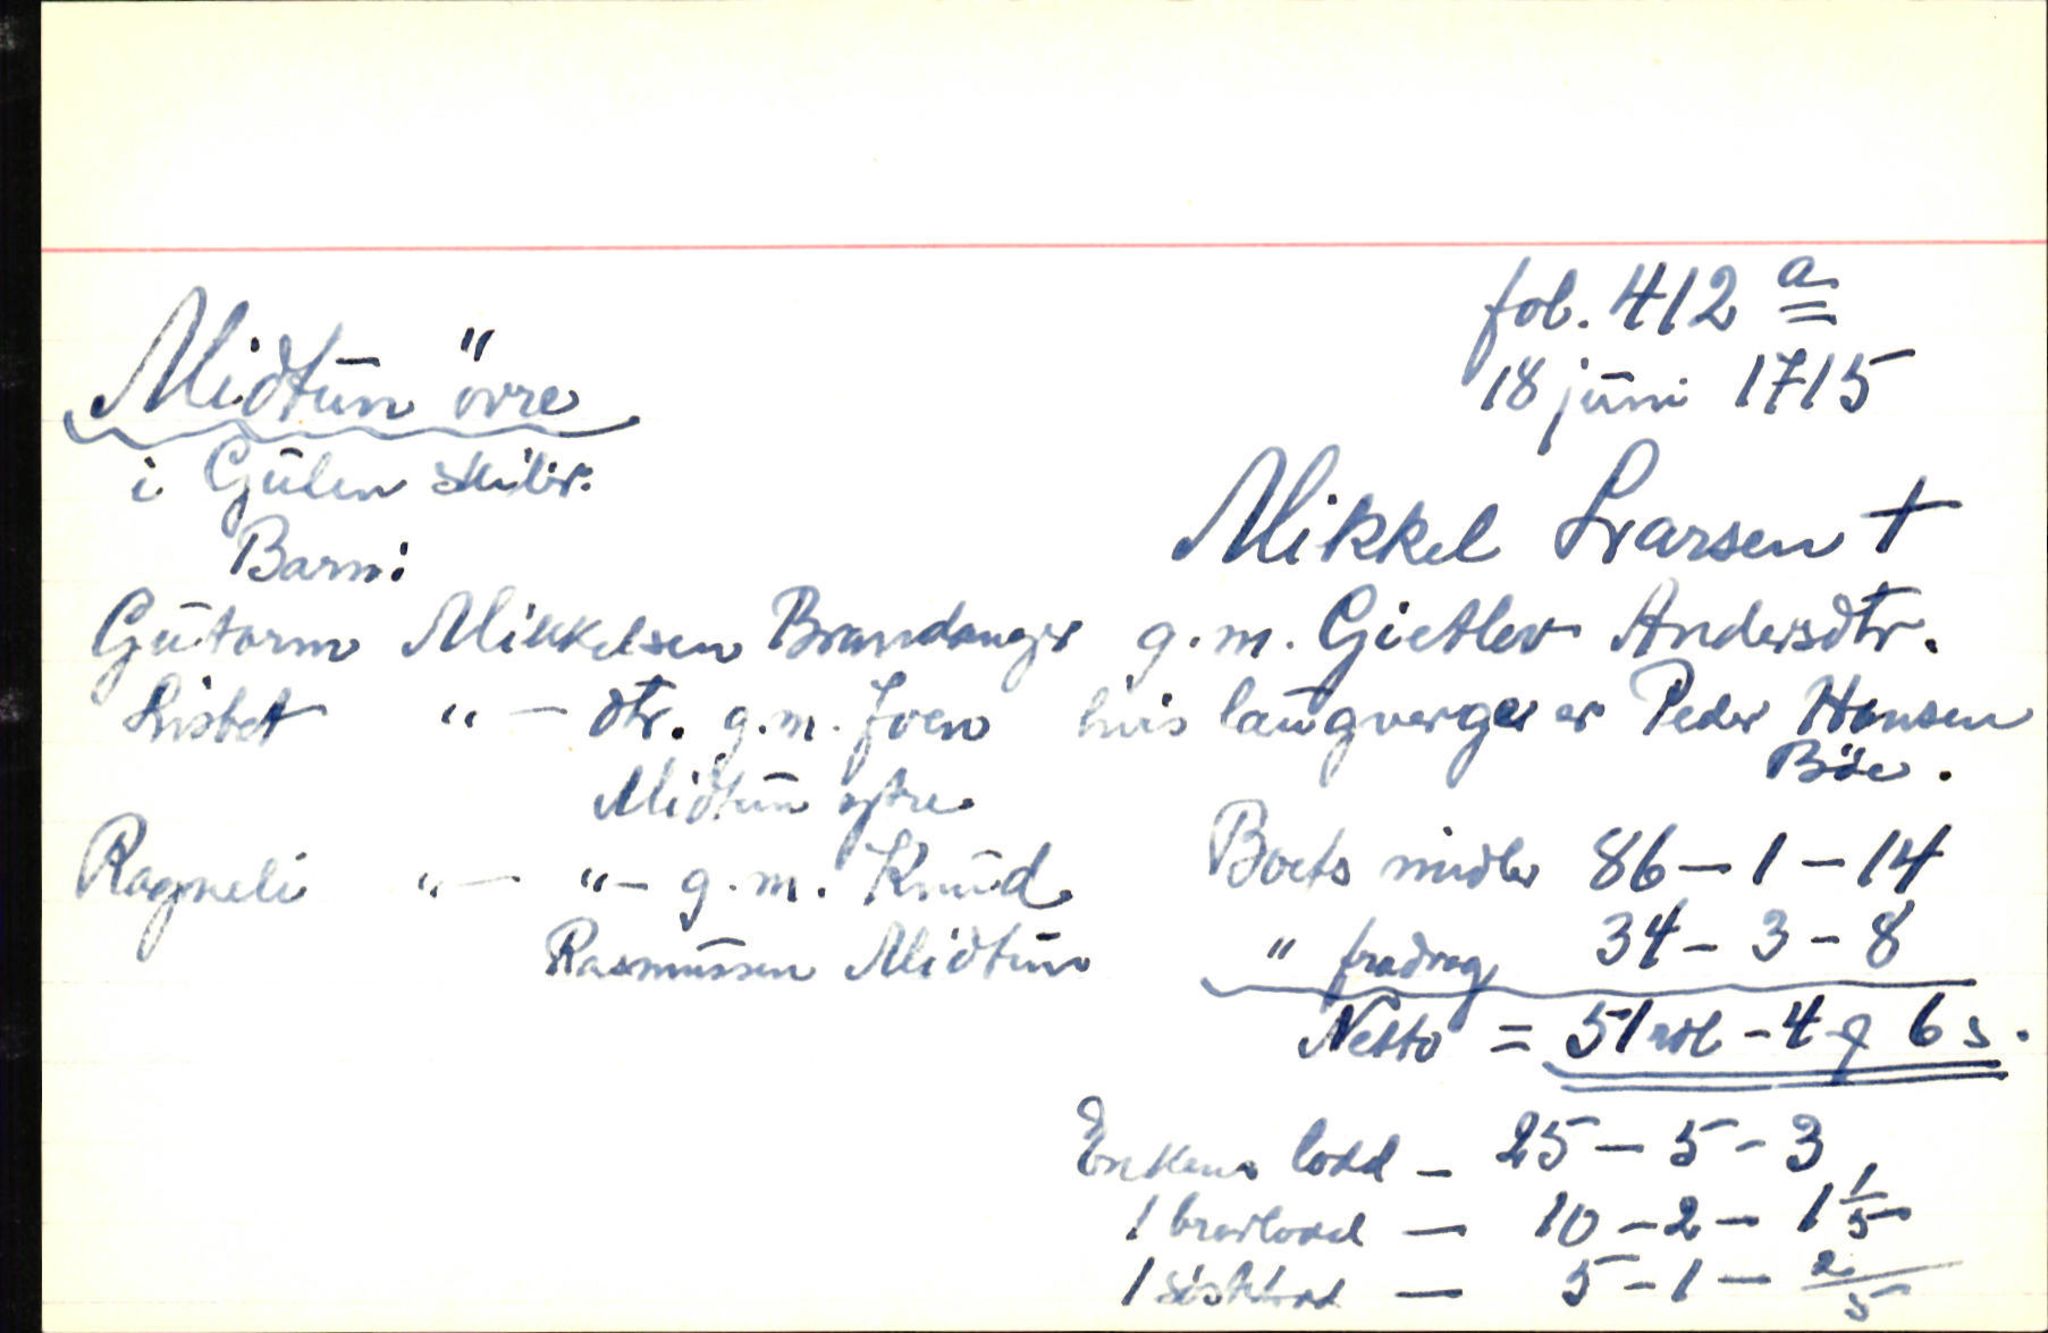 fol. 412 a
18 juni 1715
Midtun övre
i Gulen skibr.
Mikkel Larsen †
Barn:
Gutorm Mikkelsen Brandanger
Lisbet " — dtr. g.m. Joen
Midtun
Ragneli " — " — g.m. Knud
Rasmussen Midtun
g.m. Gietlev Andersdtr.
hvis laugverge er Peder Hansen
Böe.
Boets midler 86 — 1 — 14
" fradrag 34 — 3 — 8
Netto = 51 rdl — 4 6 s.
Enkens lodd — 25 — 5 — 3
1 brorlodd — 10 — 2 — 1 1/5
1 — 5 — 1 — 2/5